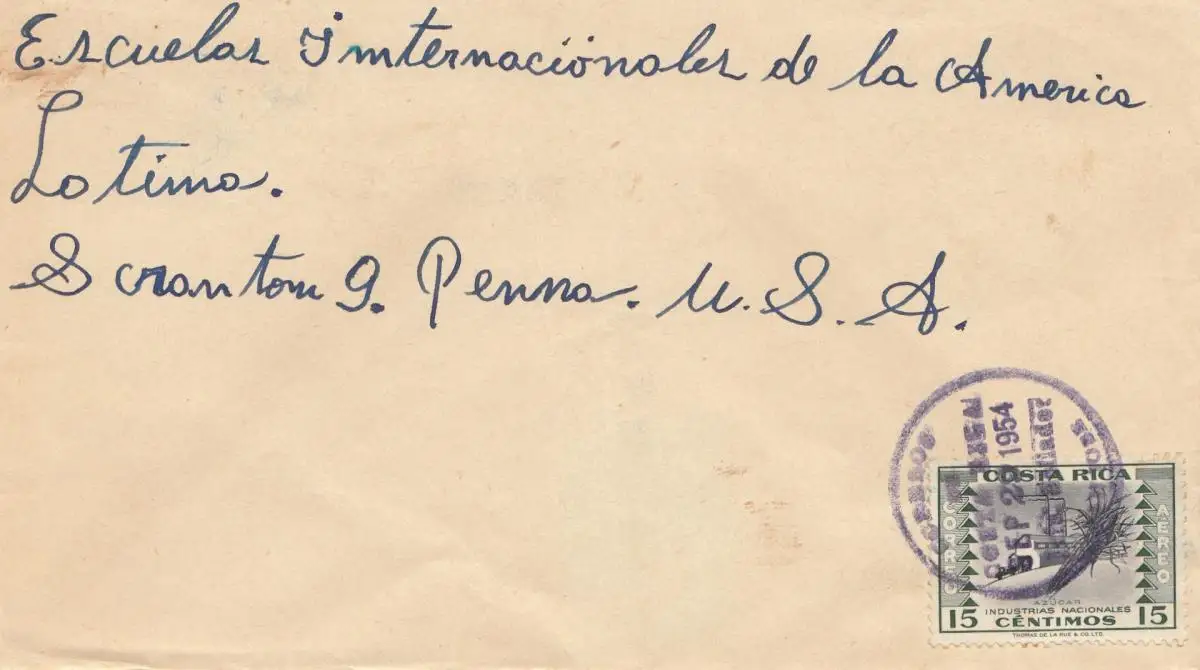 Escuelas Imternacionales de la America
Latina.
Scrantom 9. Penna. U. S. A.
CORREOS
COSTA RICA
SEP 2 1954
COSTA RICA
CORREO
AEREO
AZÚCAR
INDUSTRIAS NACIONALES
15 CÉNTIMOS 15
THOMAS DE LA RUE & CO. LTD.